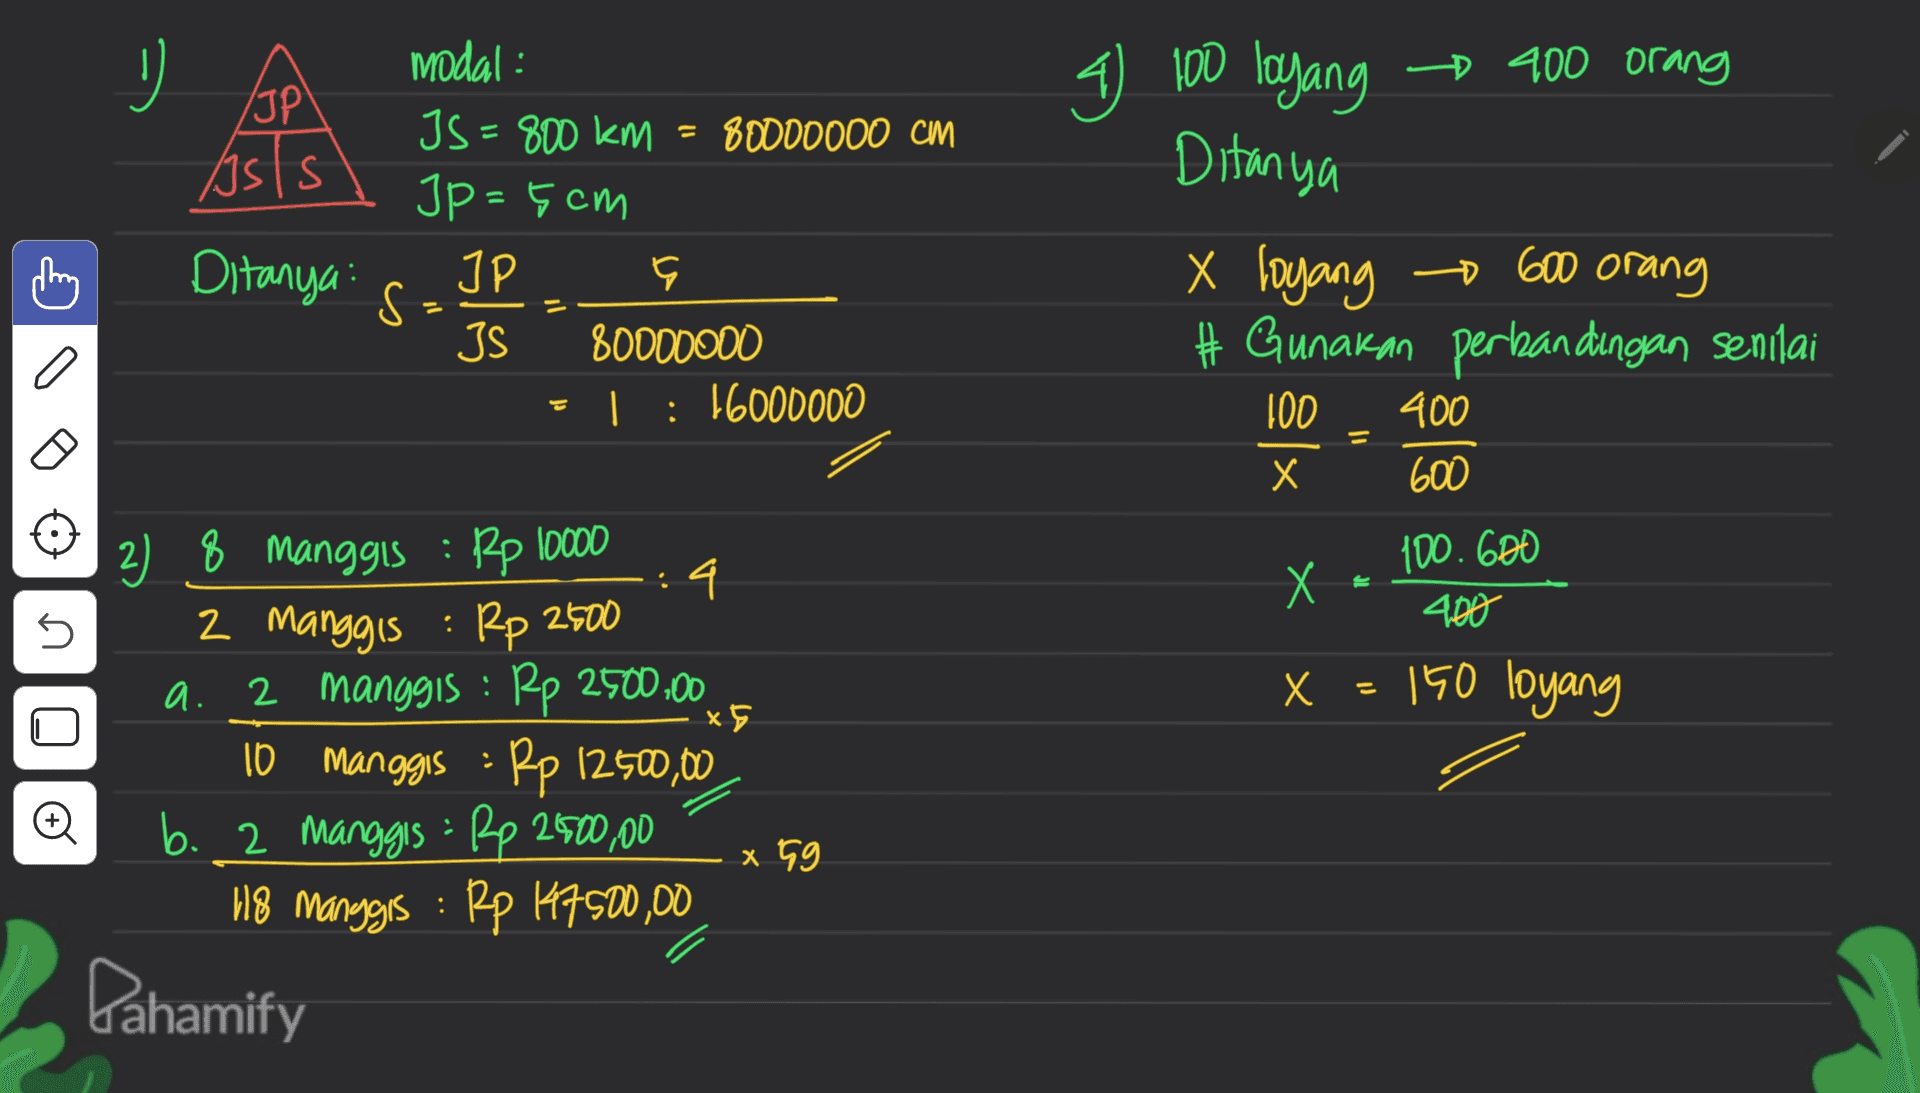 1)
JP
JS S
modal :
JS = 800 km = 80000000 cm
JP = 5 cm
Ditanya : S = JP = 5
JS 80000000
= 1 : 16000000
2) 8 Manggis : Rp 10000 : 4
2 Manggis : Rp 2500
a. 2 Manggis : Rp 2500,00 x 5
10 Manggis : Rp 12500,00
b. 2 Manggis : Rp 2500,00 x 59
118 Manggis : Rp 147500,00
4) 100 loyang → 400 orang
Ditanya
X loyang → 600 orang
# Gunakan perbandingan senilai
100 = 400
X 600
X = 100.600
400
X = 150 loyang
Pahamify